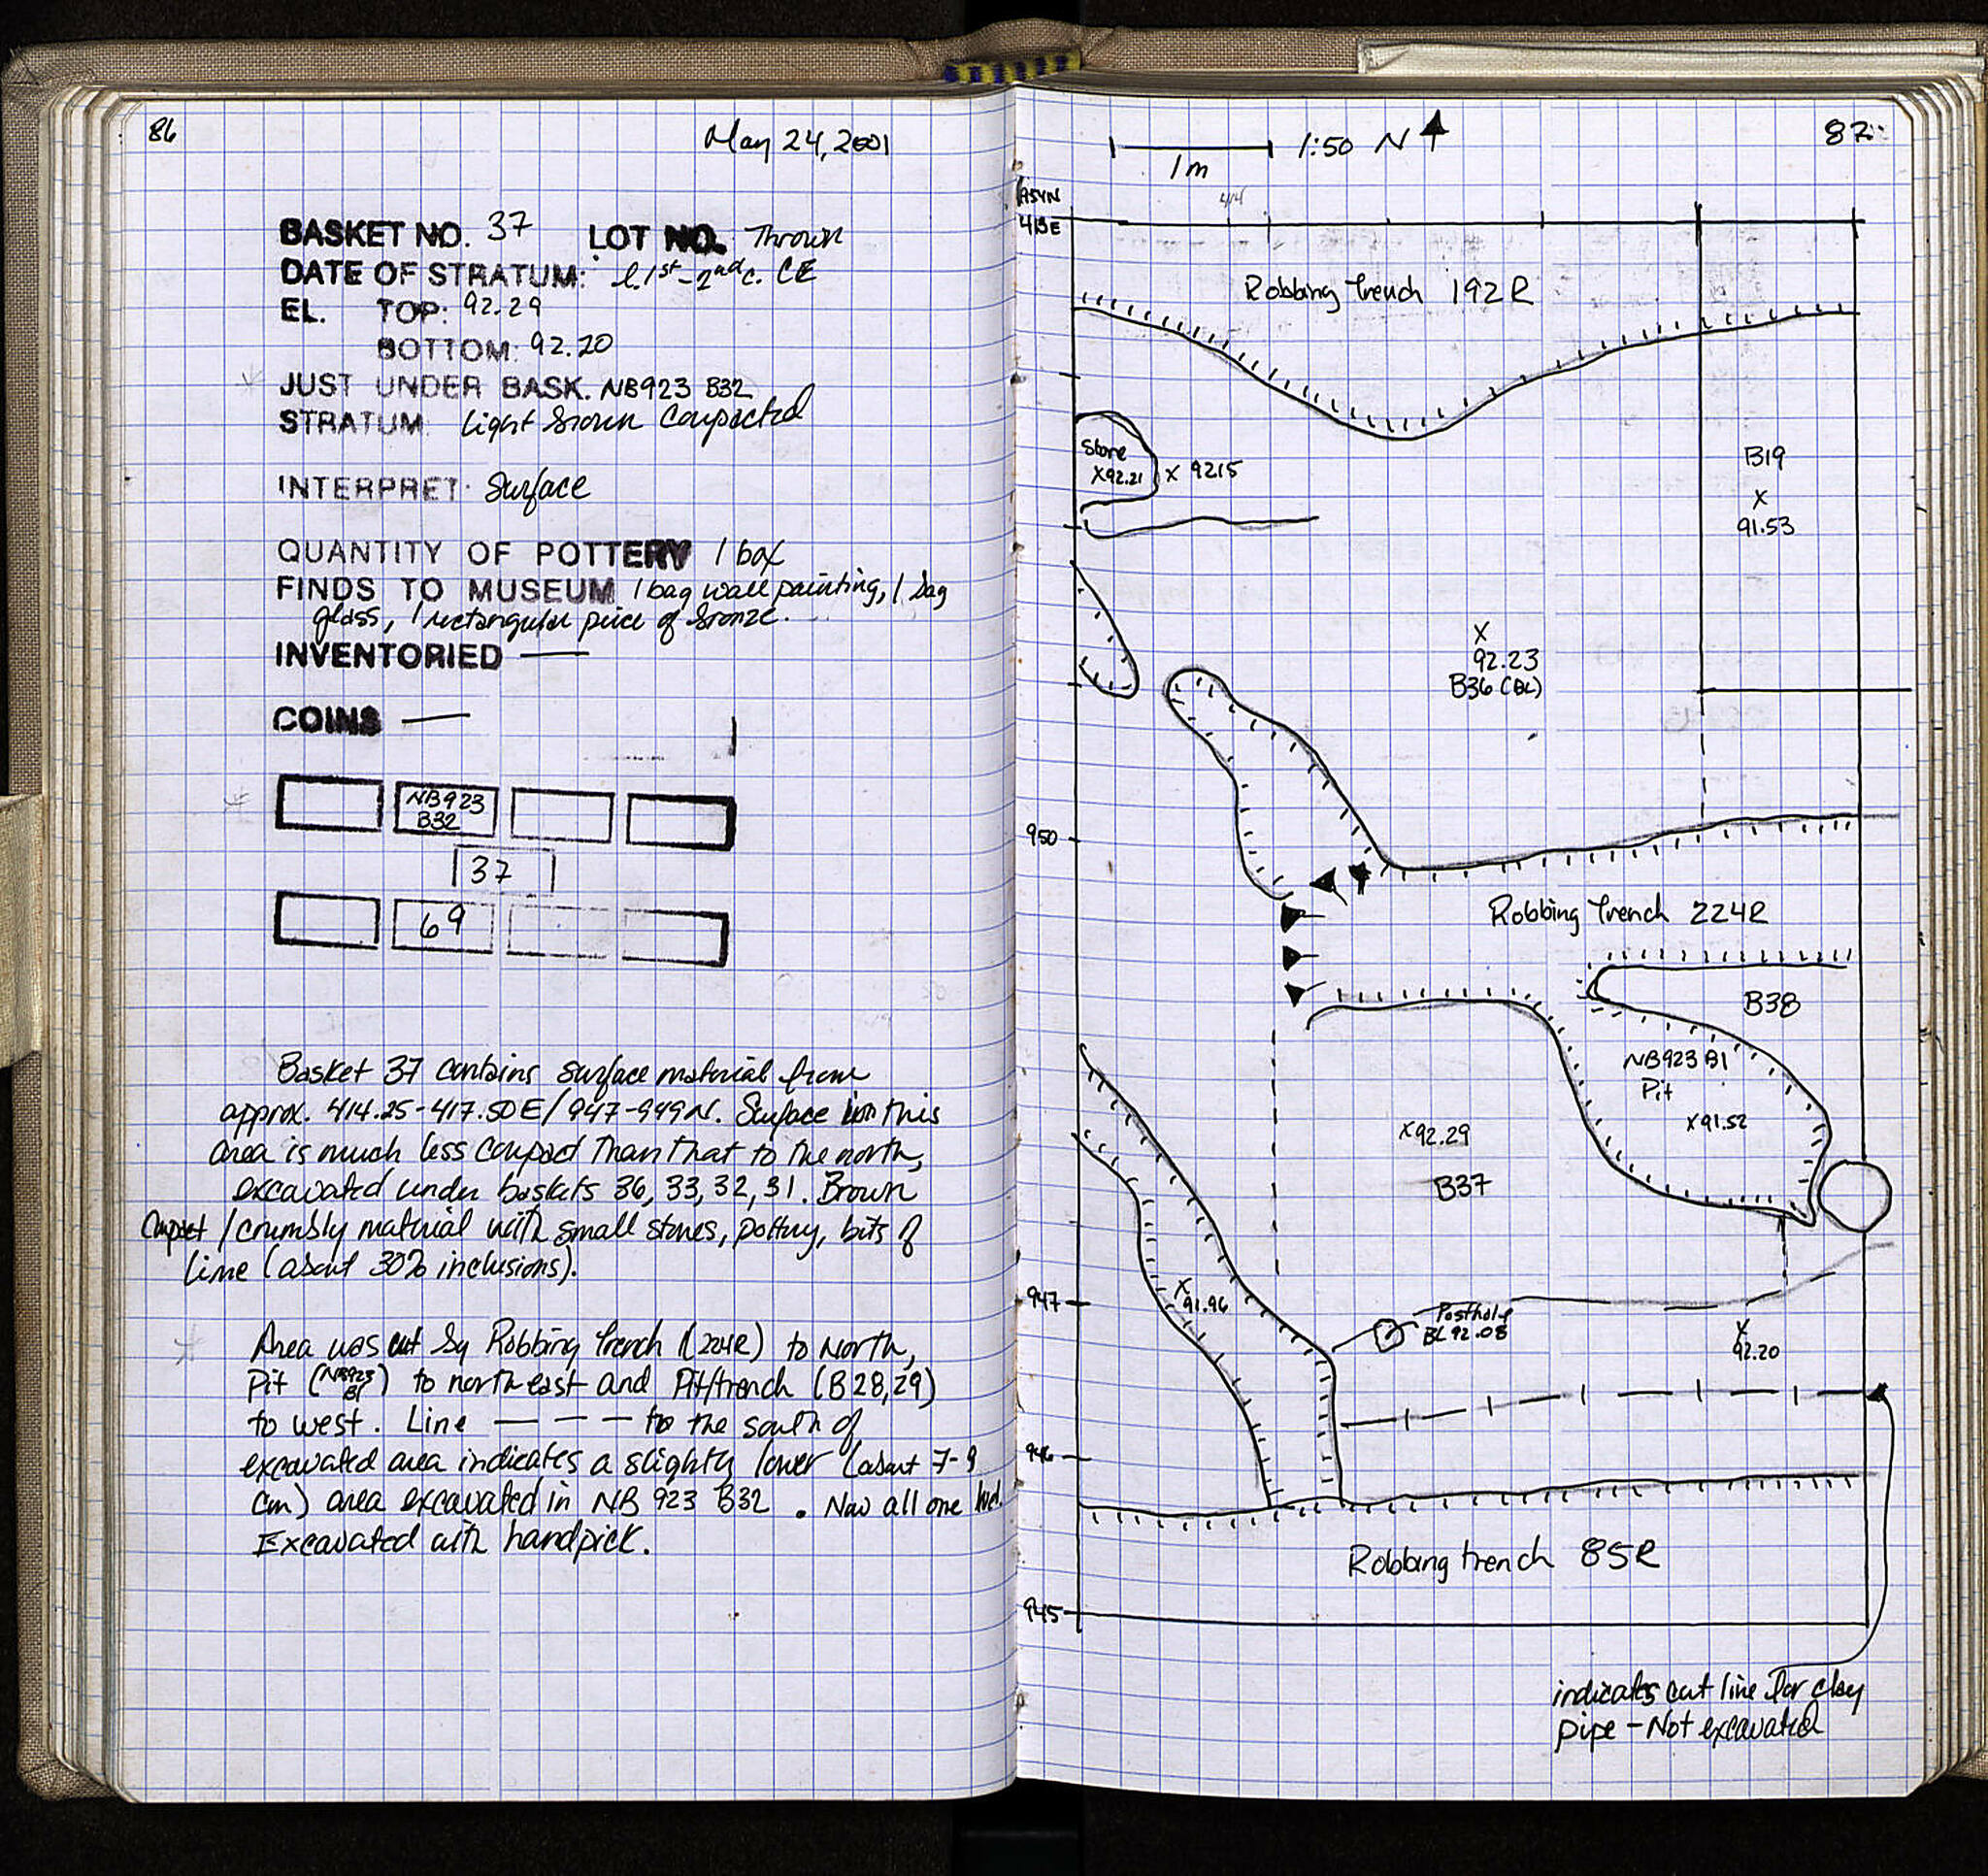 86
May 24, 2001
BASKET NO. 37 LOT NO. Thrown
DATE OF STRATUM: l. 1st-2nd c. CE
EL. TOP: 92.29
BOTTOM: 92.20
JUST UNDER BASK. NB923 B32
STRATUM Light brown Compacted
INTERPRET. Surface
QUANTITY OF POTTERY 1 box
FINDS TO MUSEUM 1 bag wall painting, 1 bag
glass, 1 rectangular piece of bronze.
INVENTORIED —
COINS —
NB923
B32
37
69
Basket 37 contains surface material from
approx. 414.25-417.50E/947-949N. Surface in this
area is much less compact than that to the north,
excavated under baskets 36, 33, 32, 31. Brown
compact/crumbly material with small stones, pottery, bits of
lime (about 30% inclusions).
Area was cut by Robbing trench (224R) to north,
Pit (NB923 B1) to northeast and Pit/trench (B28,29)
to west. Line — — — to the south of
excavated area indicates a slightly lower (about 7-9
cm) area excavated in NB 923 B32. Now all one lvl.
Excavated with handpick.
87
1:50 N
1m
954N
413E
414
Robbing trench 192R
Stone
X92.21
X 92.15
B19
X
91.53
X
92.23
B36 (BL)
950
Robbing trench 224R
B38
NB923 B1
Pit
X91.52
X92.29
B37
947
X
91.96
Posthole
BL 92.08
X
92.20
946
Robbing trench 85R
945
indicates cut line for clay
pipe - Not excavated